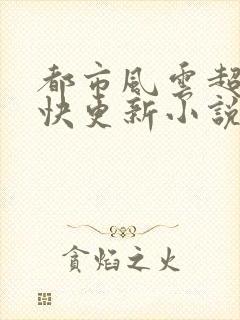 都市風雲超
快更新小說
貪焰之火